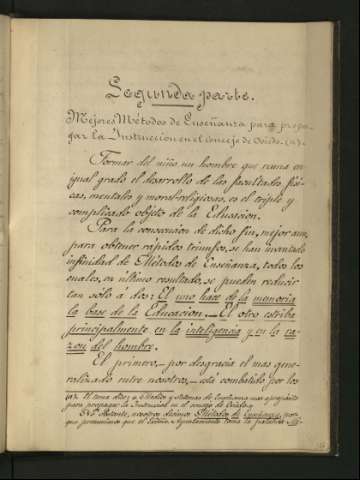 Segunda parte.
Mejores Métodos de Enseñanza para propa-
gar la Instrucción en el concejo de Oviedo. (a).
Formar del niño un hombre que reuna en
igual grado el desarrollo de las facultades físi-
cas, mentales y moral-religiosas, es el triple y
complicado objeto de la Educacion.
Para la consecución de dicho fin, mejor aun,
para obtener rápidos triunfos, se han inventado
infinidad de Métodos de Enseñanza, todos los
cuales, en último resultado, se pueden reducir
tan sólo a dos: El uno hace de la memoria
la base de la Educacion. El otro estriba
principalmente en la inteligencia y en la ra-
zon del hombre.
El primero, — por desgracia el mas gene-
ralizado entre nosotros, — solo combatido por los
(a). El tema dice: Medios y sistemas de Enseñanza mas apropósito
para propagar la Instruccion en el concejo de Oviedo.
No obstante, nosotros decimos Métodos de Enseñanza, por-
que presumimos que el Excmo. Ayuntamiento toma la palabra